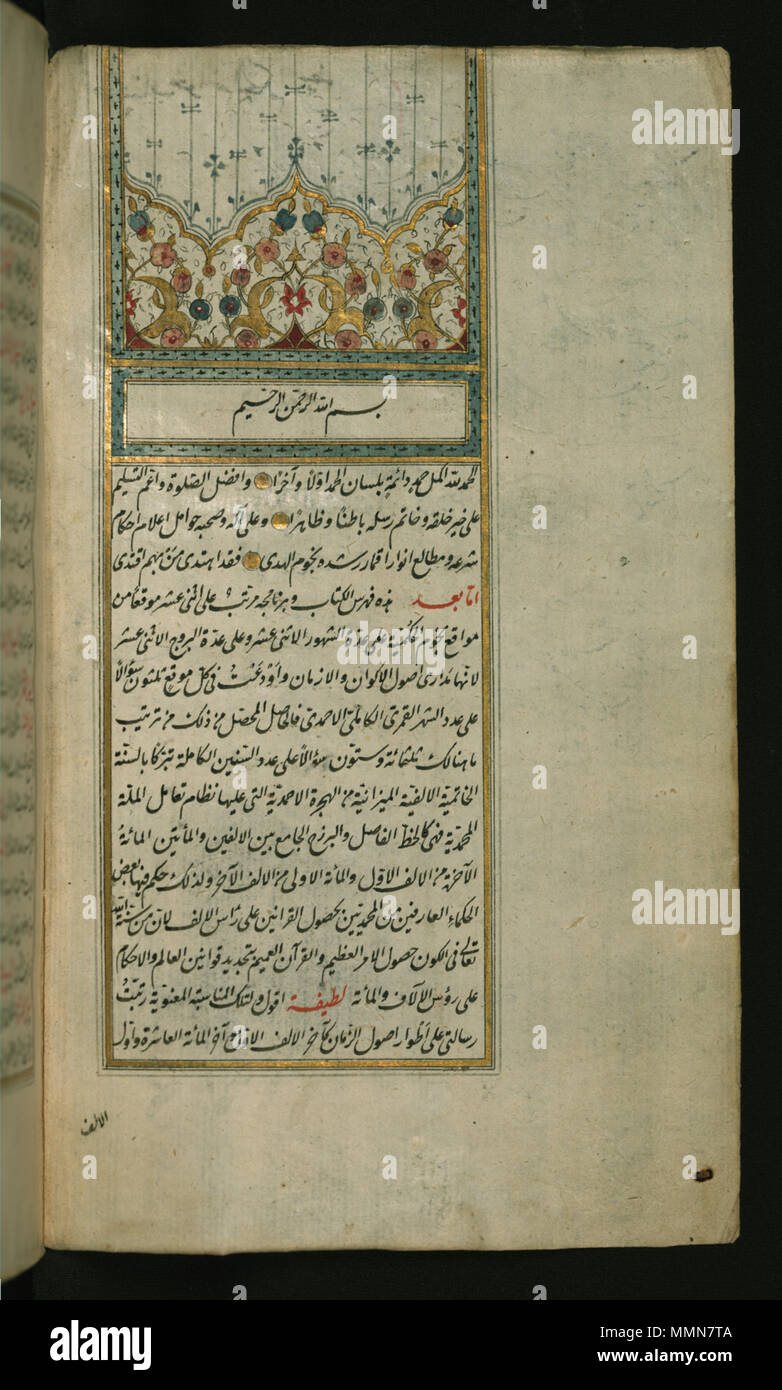 بسم الله الرحمن الرحيم
الحمد لله اكمل حمد دائمة بلسان الحمد اوّلاً وآخرًا وافضل الصلوة واعمّ التسليم
على خير خلقه وخاتم رسله باطنًا وظاهرًا وعلى آله وصحبه حوامل اعلام احكام
شرعه ومطالع انوار اقمار رشده نجوم الهدى فقد اهتدى من بهم اقتدى
امّا بعد هذه فهرس الكتاب وبرنامجه مرتّب على اثنى عشر موقعًا من
مواقع نجوم على عدّة الشهور الاثنى عشر وعلى عدّة البروج الاثنى عشر
لانّها مدارى اصول الاكوان والازمان واودعت فى كل موقع ثلثون سؤالاً
على عدد الشهر القمرى الكاملى الاحمدى فالحاصل المحصّل من ذلك من ترتيب
ما هنالك ثلثمائة وستون سؤالاً على عدد السنين الكاملة تبرّكًا بالسنة
الخاتميّة الالفيّة الميزانيّة من الهجرة الاحمديّة التى عليها نظام تعامل الملّة
المحمديّة فهى كالخطّ الفاصل والبرزخ الجامع بين الالفين والمأتين المائة
الآخرة من الالف الاوّل والمائة الاولى من الالف الآخر ولذلك حكم فيها بعض
الحكماء العارفين من المحمديين بحصول القرانين على رأس الالف لانّ من سنّة الله
تعالى فى الكون حصول الامر العظيم والقرآن العميم بتجديد قوانين العالم والاحكام
على رؤس الآلاف والمائة لطيفة اقول ولتلك المناسبة المعنويّة رتّبتُ
رسالتى على أطوار اصول الزمان كآخر الالف وآخر المائة العاشرة واوّل
الالف
alamy
Image ID: MMN7TA
www.alamy.com